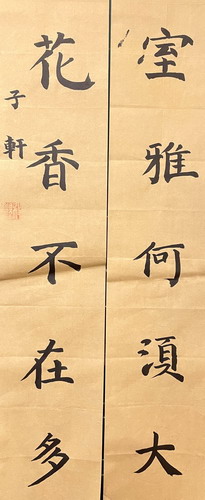 室雅何須大
花香不在多
子軒